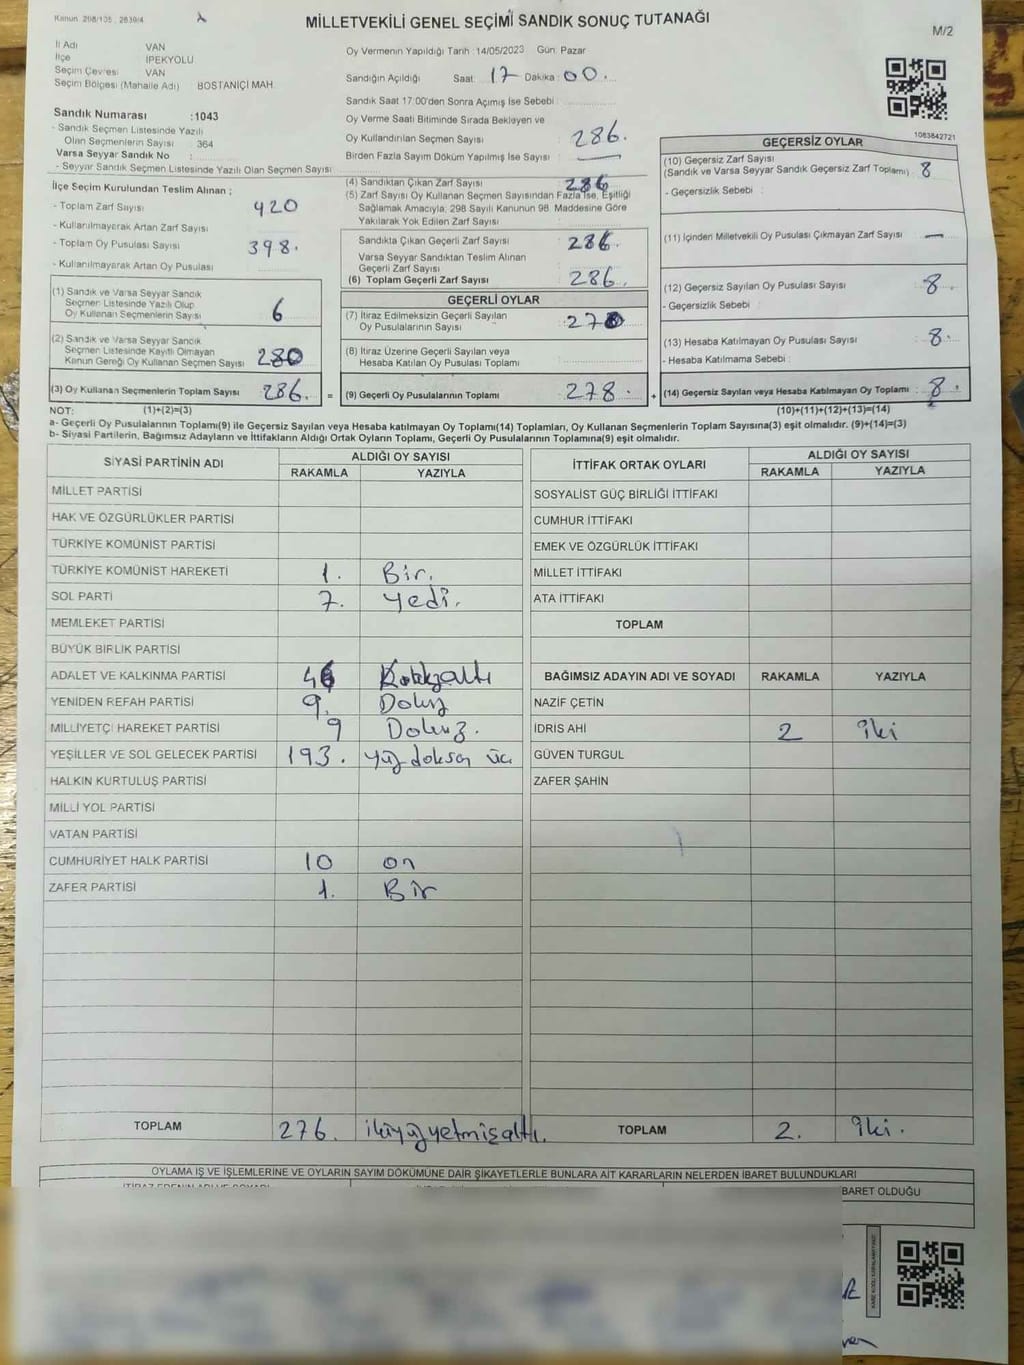 Kanun: 298/105, 2839/4
MİLLETVEKİLİ GENEL SEÇİMİ SANDIK SONUÇ TUTANAĞI
M/2
İl Adı VAN
İlçe İPEKYOLU
Seçim Çevresi VAN
Seçim Bölgesi (Mahalle Adı) BOSTANİÇİ MAH.
Sandık Numarası :1043
- Sandık Seçmen Listesinde Yazılı
Olan Seçmenlerin Sayısı : 364
Varsa Seyyar Sandık No :
- Seyyar Sandık Seçmen Listesinde Yazılı Olan Seçmen Sayısı :
Oy Vermenin Yapıldığı Tarih :14/05/2023 Gün: Pazar
Sandığın Açıldığı Saat: 17 Dakika: 00.
Sandık Saat 17:00'den Sonra Açımış İse Sebebi :
Oy Verme Saati Bitiminde Sırada Bekleyen ve
Oy Kullandırılan Seçmen Sayısı : 286.
Birden Fazla Sayım Döküm Yapılmış İse Sayısı : —
1083842721
İlçe Seçim Kurulundan Teslim Alınan ;
- Toplam Zarf Sayısı 420
- Kullanılmayarak Artan Zarf Sayısı
- Toplam Oy Pusulası Sayısı 398.
- Kullanılmayarak Artan Oy Pusulası
(1) Sandık ve Varsa Seyyar Sandık
Seçmen Listesinde Yazılı Olup
Oy Kullanan Seçmenlerin Sayısı 6
(2) Sandık ve Varsa Seyyar Sandık
Seçmen Listesinde Kayıtlı Olmayan
Kanun Gereği Oy Kullanan Seçmen Sayısı 280
(3) Oy Kullanan Seçmenlerin Toplam Sayısı 286. =
(4) Sandıktan Çıkan Zarf Sayısı 286
(5) Zarf Sayısı Oy Kullanan Seçmen Sayısından Fazla İse, Eşitliği
Sağlamak Amacıyla; 298 Sayılı Kanunun 98. Maddesine Göre
Yakılarak Yok Edilen Zarf Sayısı
Sandıkta Çıkan Geçerli Zarf Sayısı 286.
Varsa Seyyar Sandıktan Teslim Alınan
Geçerli Zarf Sayısı
(6) Toplam Geçerli Zarf Sayısı 286.
GEÇERLİ OYLAR
(7) İtiraz Edilmeksizin Geçerli Sayılan
Oy Pusulalarının Sayısı : 278
(8) İtiraz Üzerine Geçerli Sayılan veya
Hesaba Katılan Oy Pusulası Toplamı
(9) Geçerli Oy Pusulalarının Toplamı : 278. +
GEÇERSİZ OYLAR
(10) Geçersiz Zarf Sayısı
(Sandık ve Varsa Seyyar Sandık Geçersiz Zarf Toplamı) 8
- Geçersizlik Sebebi :
(11) İçinden Milletvekili Oy Pusulası Çıkmayan Zarf Sayısı —
(12) Geçersiz Sayılan Oy Pusulası Sayısı : 8.
- Geçersizlik Sebebi :
(13) Hesaba Katılmayan Oy Pusulası Sayısı : 8.
- Hesaba Katılmama Sebebi :
(14) Geçersiz Sayılan veya Hesaba Katılmayan Oy Toplamı : 8.
NOT: (1)+(2)=(3) (10)+(11)+(12)+(13)=(14)
a- Geçerli Oy Pusulasının Toplamı(9) ile Geçersiz Sayılan veya Hesaba katılmayan Oy Toplamı(14) Toplamları, Oy Kullanan Seçmenlerin Toplam Sayısına(3) eşit olmalıdır. (9)+(14)=(3)
b- Siyasi Partilerin, Bağımsız Adayların ve İttifakların Aldığı Ortak Oyların Toplamı, Geçerli Oy Pusulalarının Toplamına(9) eşit olmalıdır.
SİYASİ PARTİNİN ADI ALDIĞI OY SAYISI
RAKAMLA YAZIYLA
MİLLET PARTİSİ
HAK VE ÖZGÜRLÜKLER PARTİSİ
TÜRKİYE KOMÜNİST PARTİSİ
TÜRKİYE KOMÜNİST HAREKETİ 1. Bir.
SOL PARTİ 7. yedi.
MEMLEKET PARTİSİ
BÜYÜK BİRLİK PARTİSİ
ADALET VE KALKINMA PARTİSİ 46
YENİDEN REFAH PARTİSİ 9. Dokuz
MİLLİYETÇİ HAREKET PARTİSİ 9 Dokuz.
YEŞİLLER VE SOL GELECEK PARTİSİ 193. yüz doksan üç
HALKIN KURTULUŞ PARTİSİ
MİLLİ YOL PARTİSİ
VATAN PARTİSİ
CUMHURİYET HALK PARTİSİ 10 on
ZAFER PARTİSİ 1. Bir
TOPLAM 276. ikiyüzyetmişaltı.
İTTİFAK ORTAK OYLARI ALDIĞI OY SAYISI
RAKAMLA YAZIYLA
SOSYALİST GÜÇ BİRLİĞİ İTTİFAKI
CUMHUR İTTİFAKI
EMEK VE ÖZGÜRLÜK İTTİFAKI
MİLLET İTTİFAKI
ATA İTTİFAKI
TOPLAM
BAĞIMSIZ ADAYIN ADI VE SOYADI RAKAMLA YAZIYLA
NAZİF ÇETİN
İDRİS AHİ 2 iki
GÜVEN TURGUL
ZAFER ŞAHİN
TOPLAM 2. iki.
OYLAMA İŞ VE İŞLEMLERİNE VE OYLARIN SAYIM DÖKÜMÜNE DAİR ŞİKAYETLERLE BUNLARA AİT KARARLARIN NELERDEN İBARET BULUNDUKLARI
BARET OLDUĞU